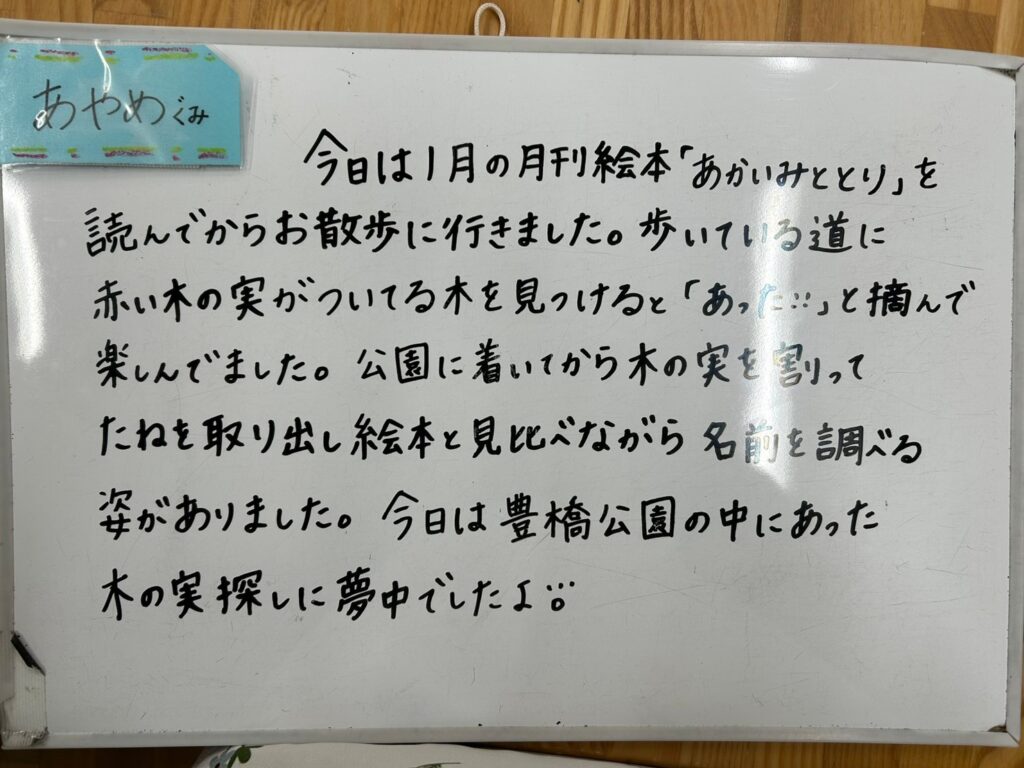 あやめぐみ
今日は1月の月刊絵本「あかいみととり」を
読んでからお散歩に行きました。歩いている道に
赤い木の実がついてる木を見つけると「あった!!」と摘んで
楽しんでました。公園に着いてから木の実を割って
たねを取り出し絵本と見比べながら名前を調べる
姿がありました。今日は豊橋公園の中にあった
木の実探しに夢中でしたよ。